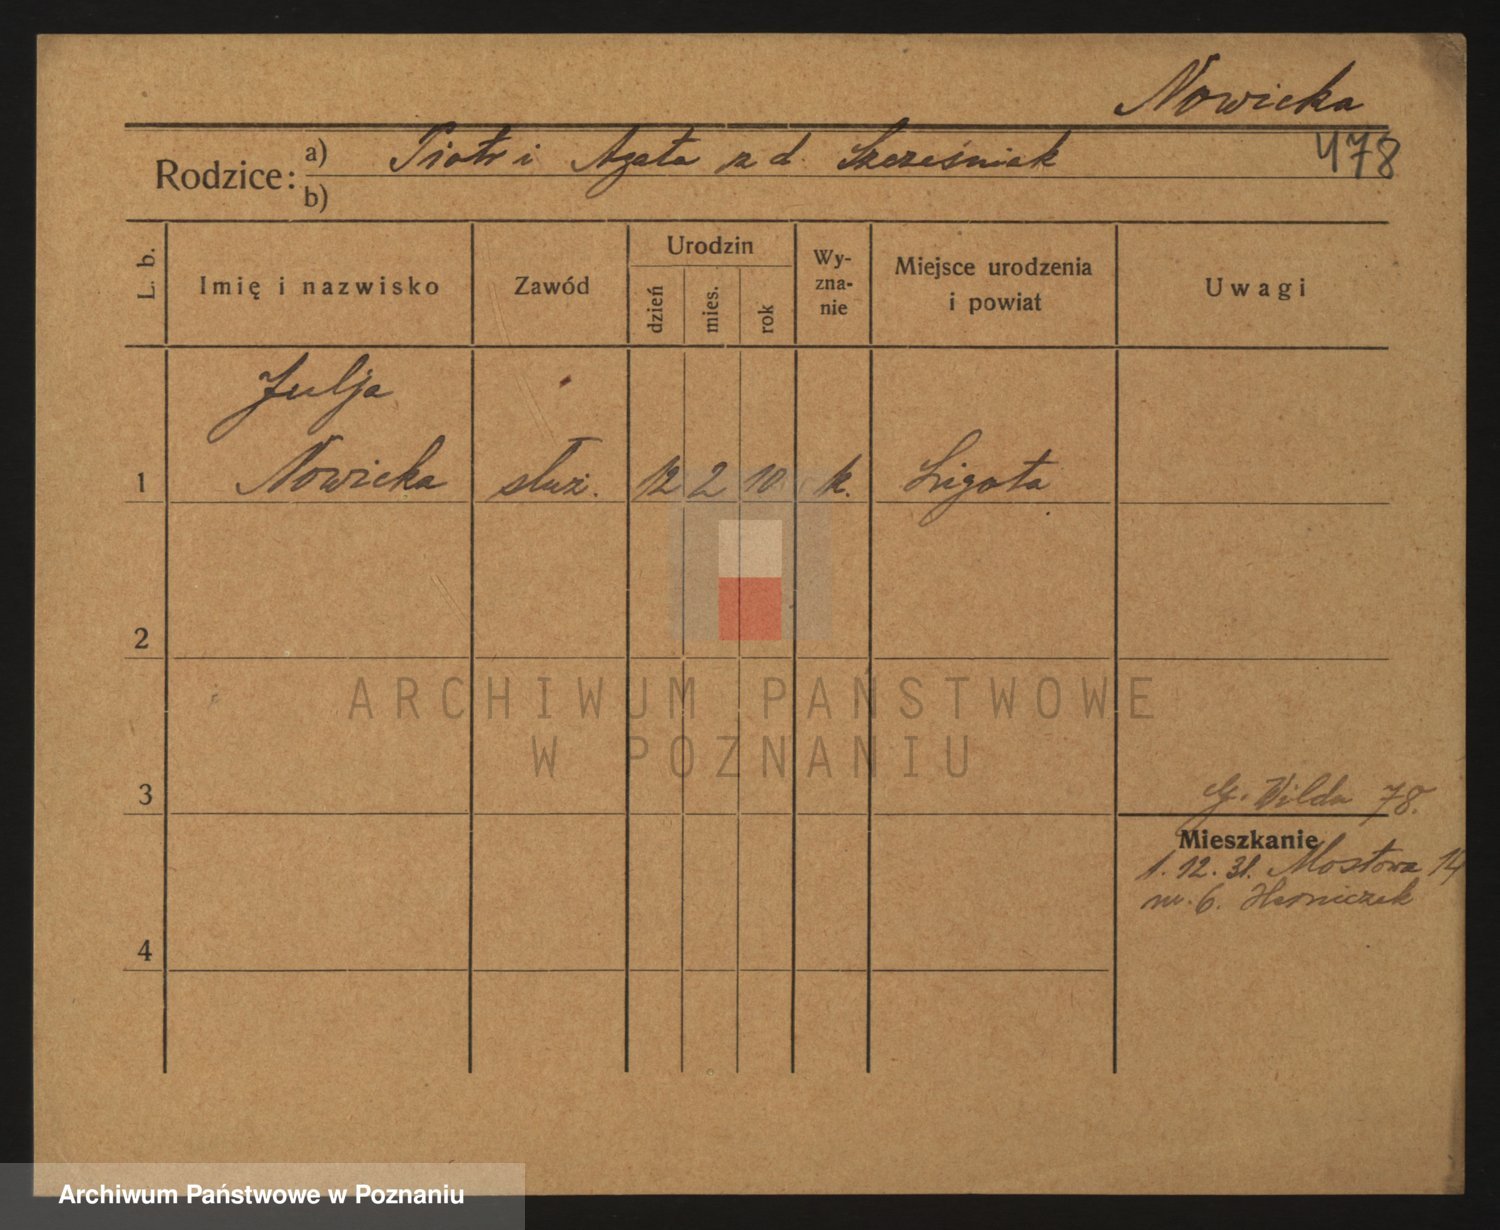 Nowicka
478
Rodzice: a) Piotr i Agata z d. Szcześniak
b)
L. b.
Imię i nazwisko
Zawód
Urodzin
dzień
mies.
rok
Wy-
zna-
nie
Miejsce urodzenia
i powiat
Uwagi
Julja
1 Nowicka służ. 12 2 10 k. Ligota
2
ARCHIWUM PAŃSTWOWE
W POZNANIU
3
G. Wilda 78.
Mieszkanie
1. 12. 31. Mostowa 14
m. 6.
4
Archiwum Państwowe w Poznaniu